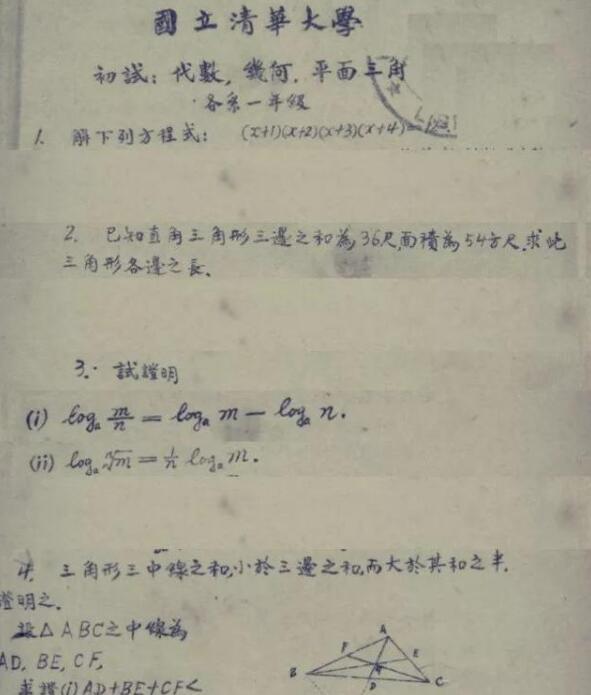 國立清華大學
初試：代數，幾何，平面三角
各系一年級
1. 解下列方程式： (x+1)(x+2)(x+3)(x+4)=
2. 已知直角三角形三邊之和為36尺,面積為54方尺.求此
三角形各邊之長.
3. 試證明
(i) logₐ m/n = logₐ m − logₐ n.
(ii) logₐ ⁿ√m = 1/n logₐ m.
4. 三角形三中線之和,小於三邊之和,而大於其和之半.
證明之.
設△ABC之中線為
AD, BE, CF,
求證(i) AD+BE+CF<
A
F
E
B
D
C